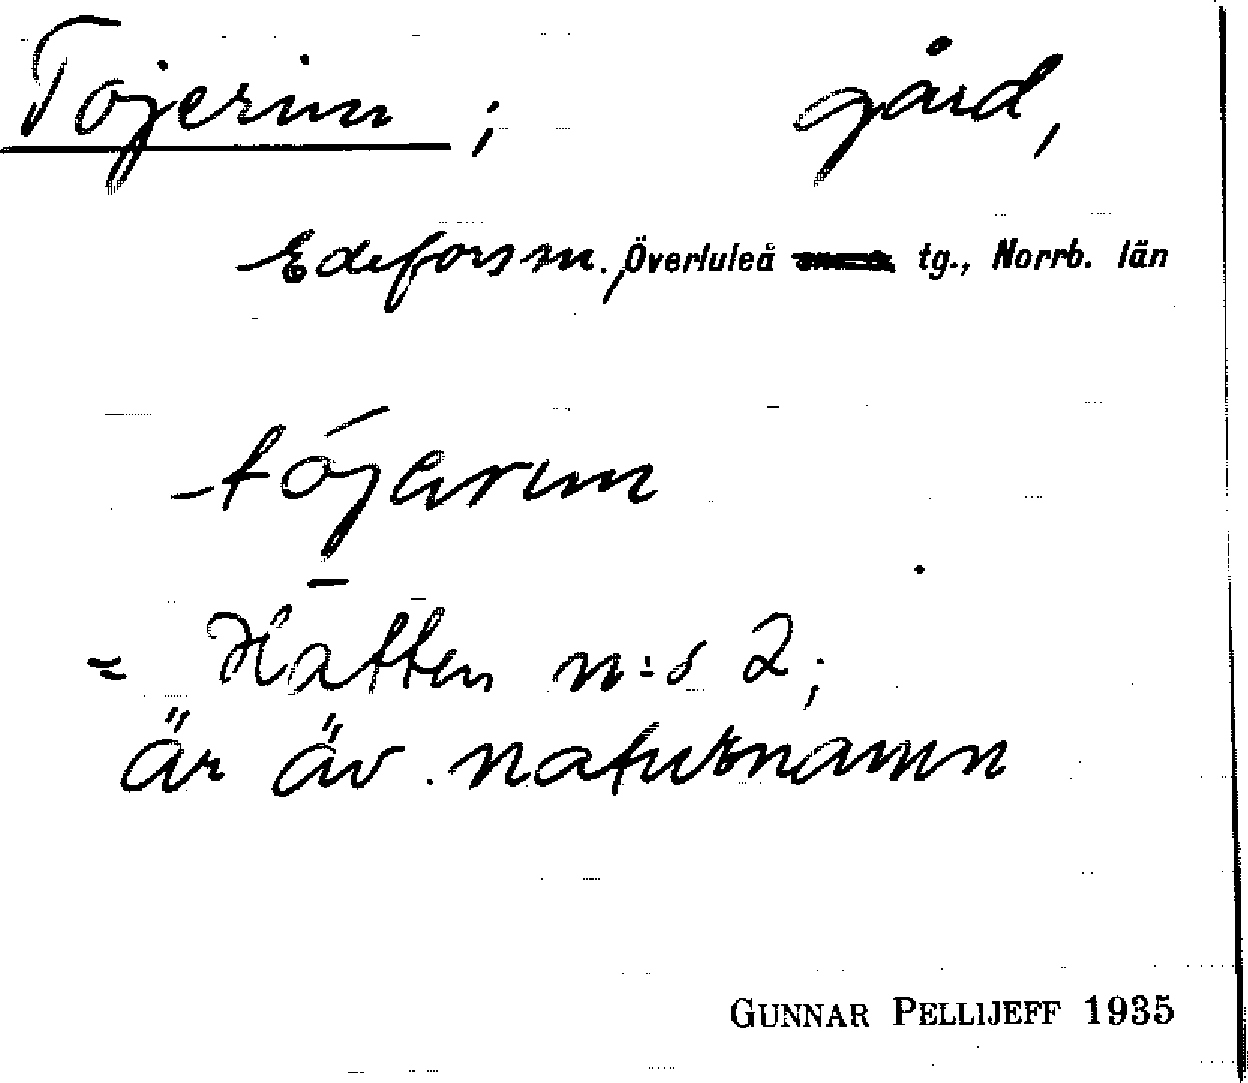 Tojerinn; gård,
Edefors sn., Överluleå tg., Norrb. län
tójerinn
= Hatten n:s 2;
är äv. naturnamn
GUNNAR PELLIJEFF 1935